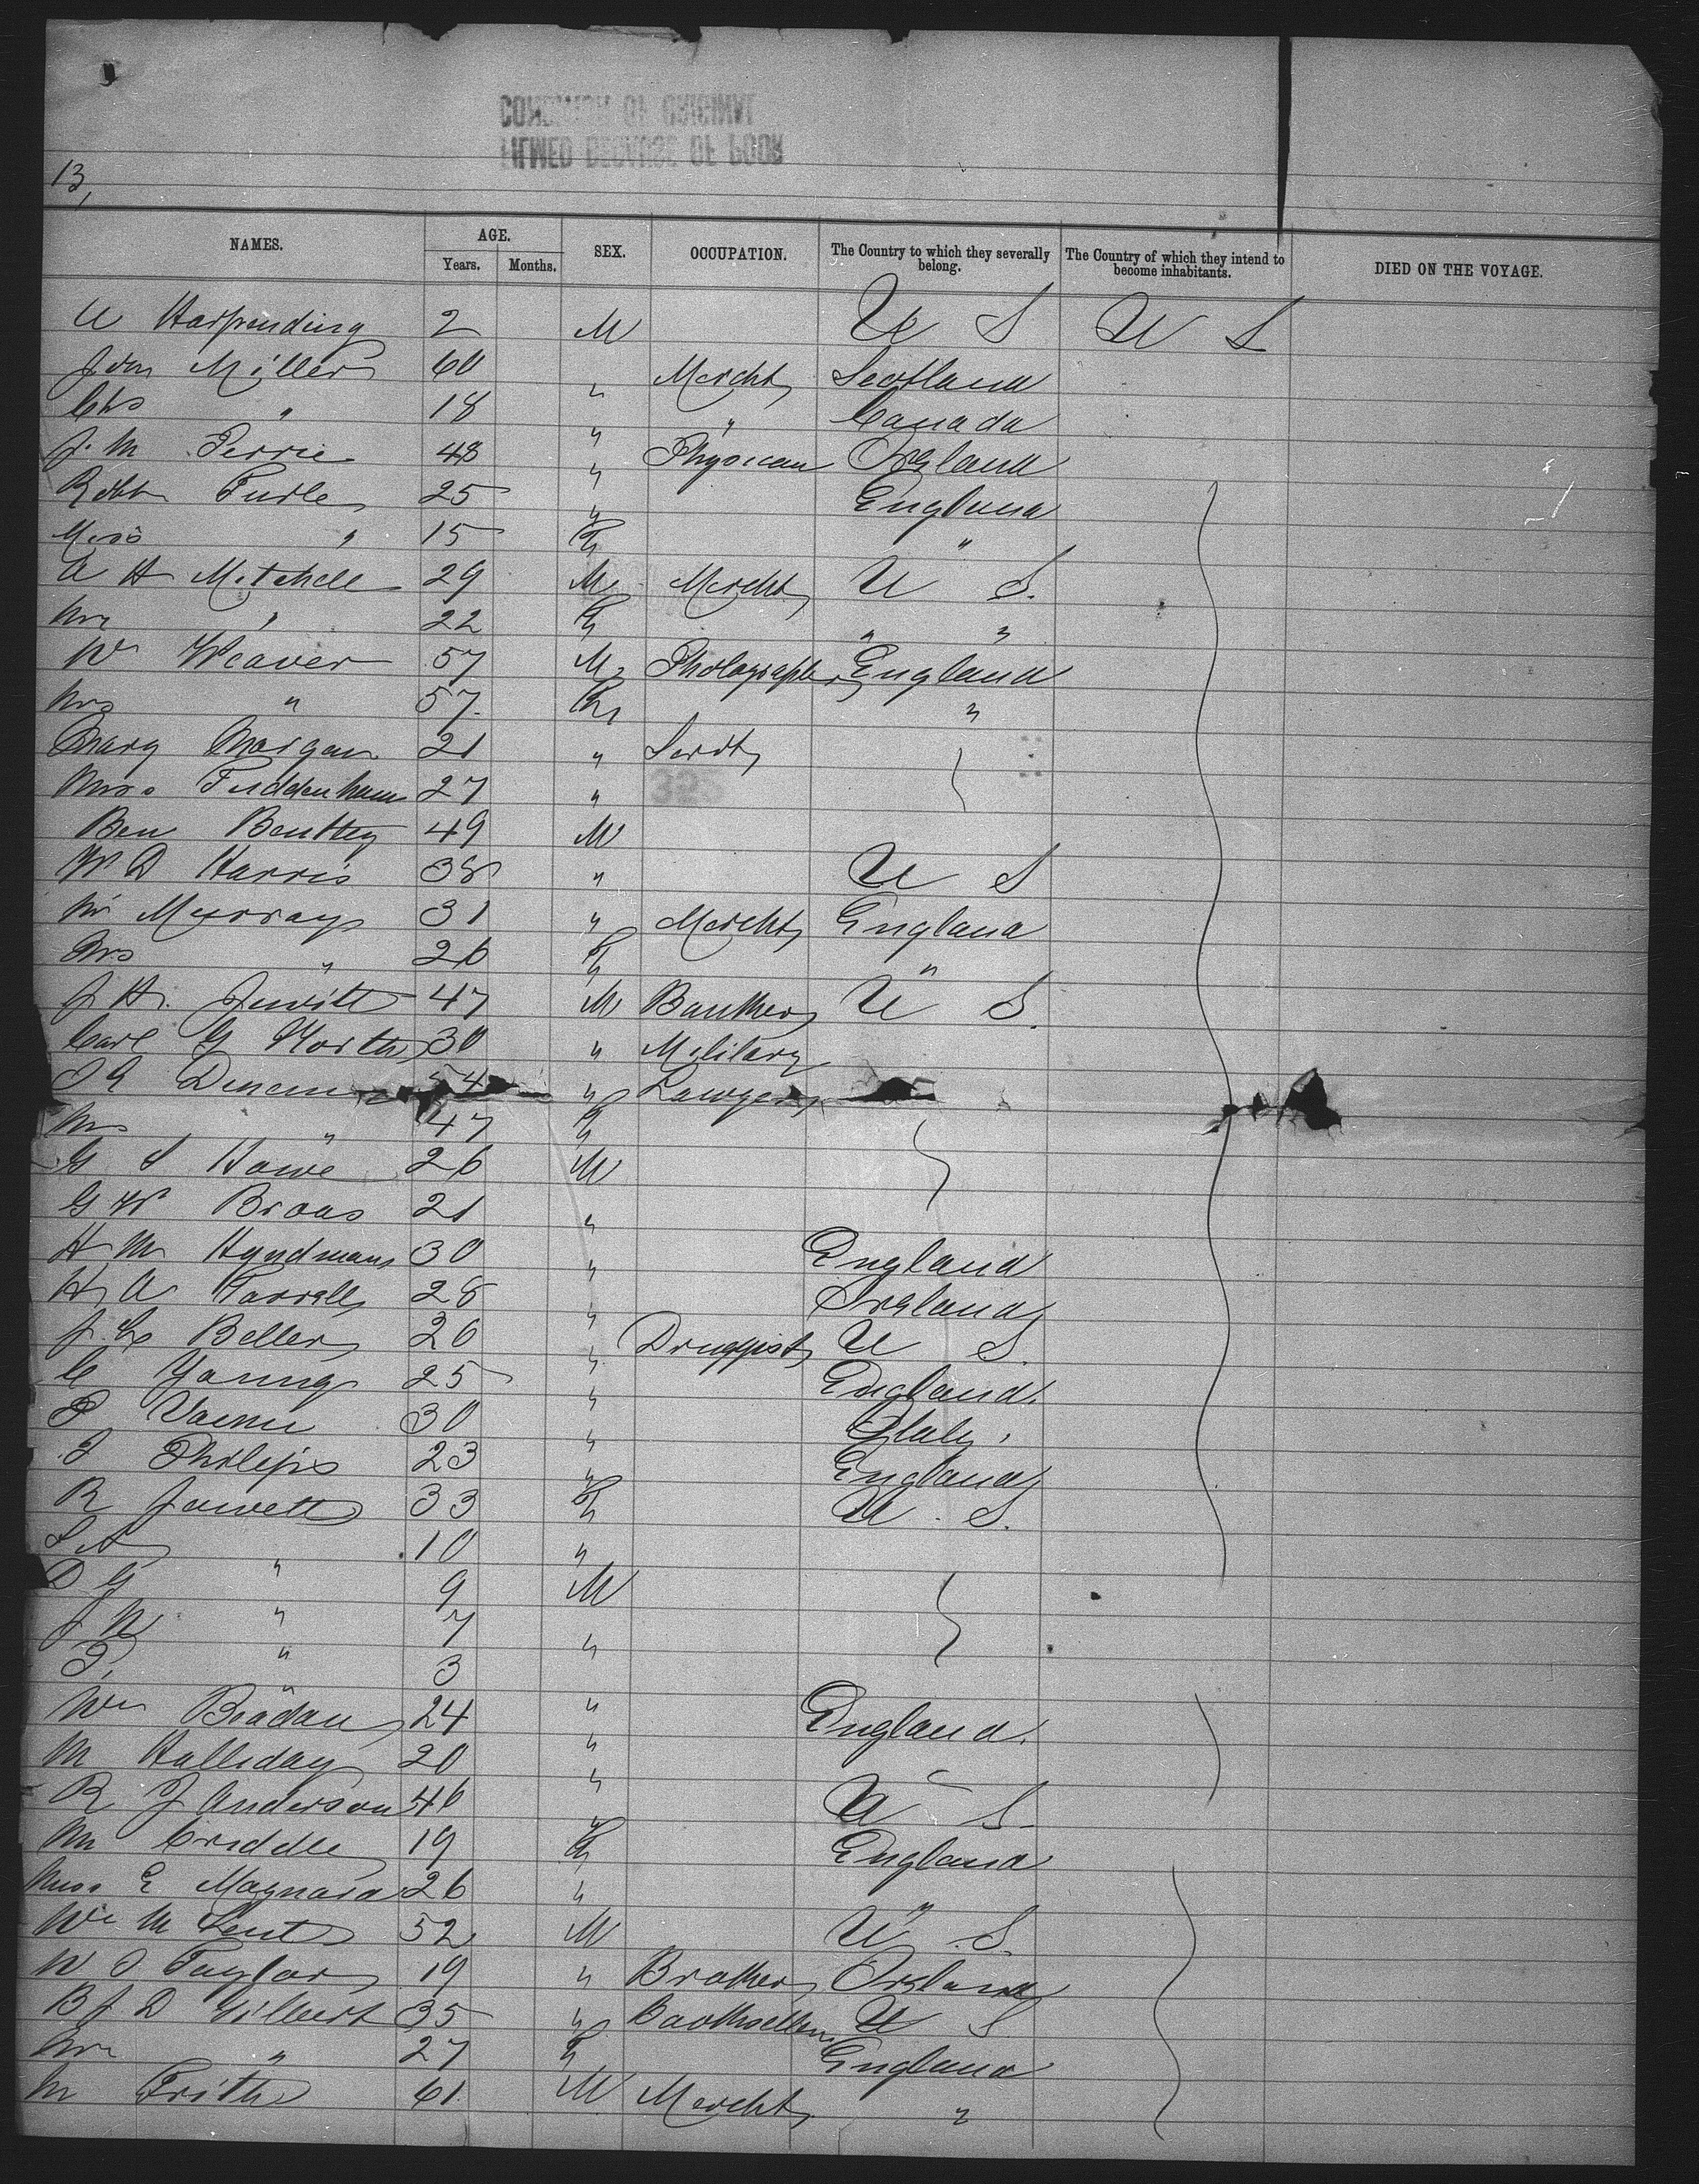 13,
NAMES. AGE. Years. Months. SEX. OCCUPATION. The Country to which they severally belong. The Country of which they intend to become inhabitants. DIED ON THE VOYAGE.
A Harpending 2 M U S U S
Jon Miller 60 " Mercht Scotland
Chs " 18 " " Canada
J. M Perrie 48 " Physician Ireland
Robt Turle 25 " England
Miss " 15 F "
A H Mitchell 29 M Mercht U S.
Mrs " 22 F " "
W Weaver 57 M Photographer England
Mrs " 57 F "
Mary Morgan 21 " Servt
Miss Tuddenham 27 "
Ben Benttey 49 M
W D Harris 38 " U S
Mr Murray 31 " Mercht England
Mrs " 26 F "
J H. Jewitt 47 M Banker U S.
Carl G North 30 " Military
54 " Lawyer
Mrs " 47 F
G S Howe 26 M
G W Broas 21 "
H M Hyndman 30 " England
H A Farrell 28 " Ireland
J. C Beller 26 " Druggist U S.
C Young 25 " England.
P 30 " Italy,
J Philips 23 " England
R Jowett 33 F U. S.
10 "
D G " 9 M
J W " 7 "
" 3
Wm Beadau 24 " England.
M Halliday 20 " "
R J Anderson 46 " U S.
Criddle 19 F England
Miss E Maynard 26 " "
Wm M Lent 52 M U S.
W J Taylor 19 " Broker Ireland
B J D Gilbert 35 " Bookseller U S
Mrs " 27 F England
M Frith 61. M Mercht "